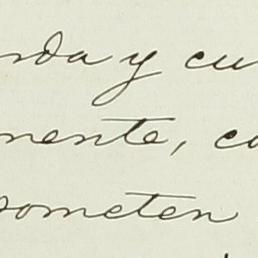 nda y cu
mente, co
someten